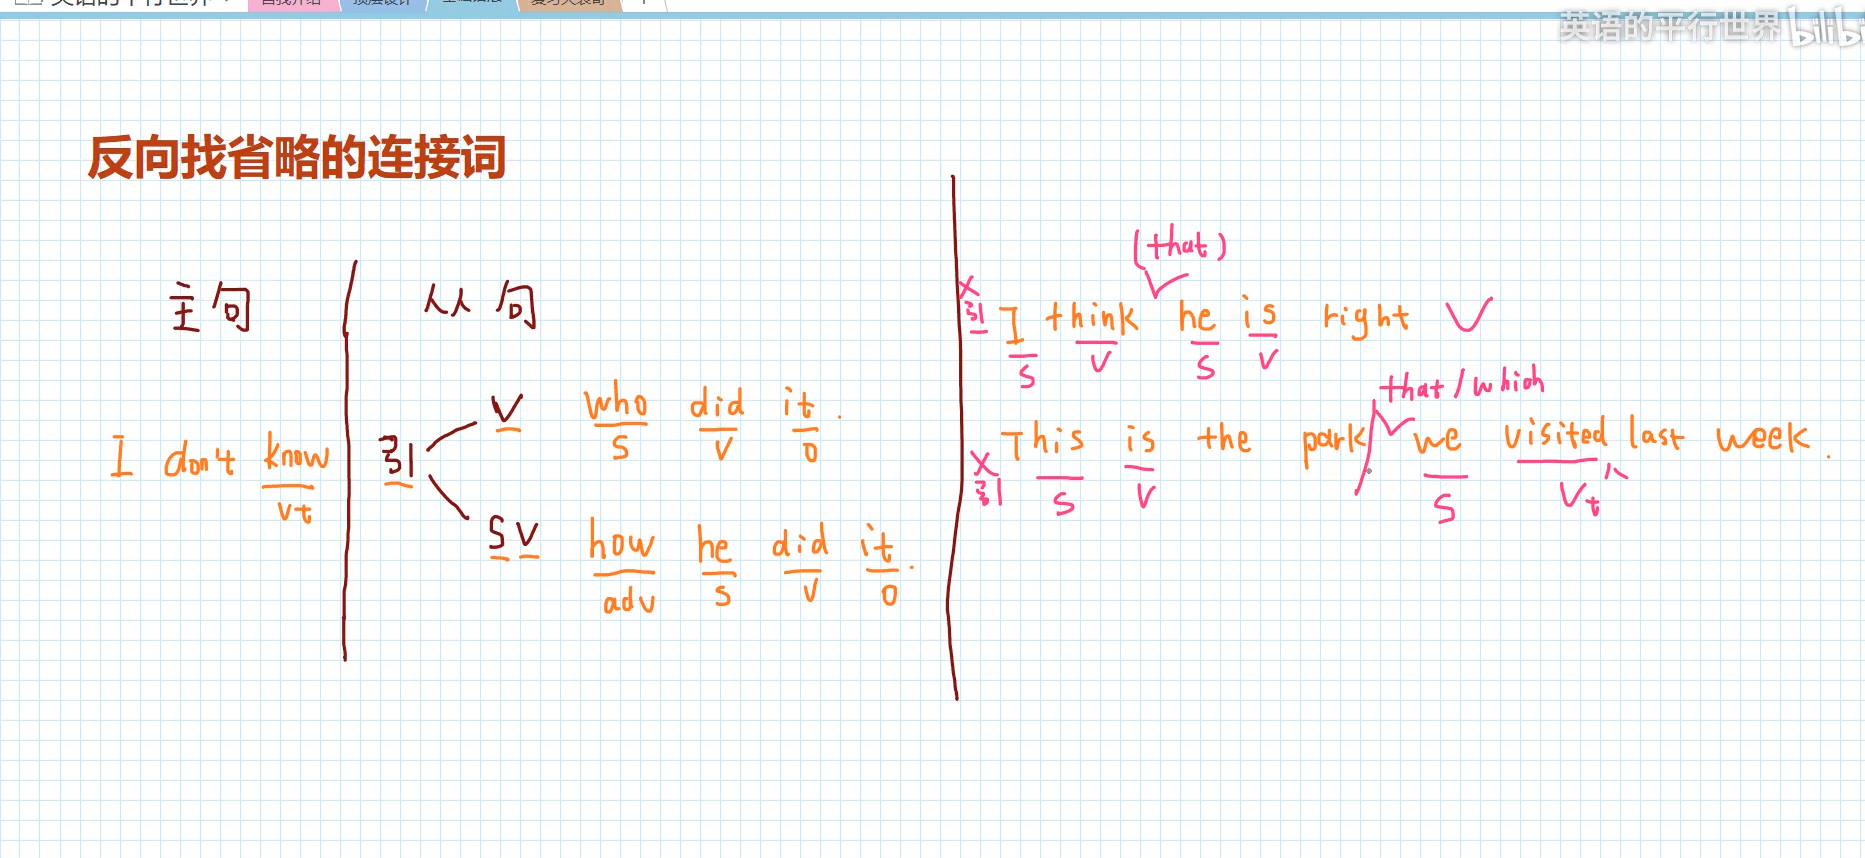 英语的平行世界
英语的平行世界 bilibi
反向找省略的连接词
主句 从句
I don't know
vt
引
V who did it.
S V O
SV how he did it.
adv S V O
(that)
X
引 I think he is right V
S V S V
that/which
X
引 This is the park we visited last week.
S V S Vt